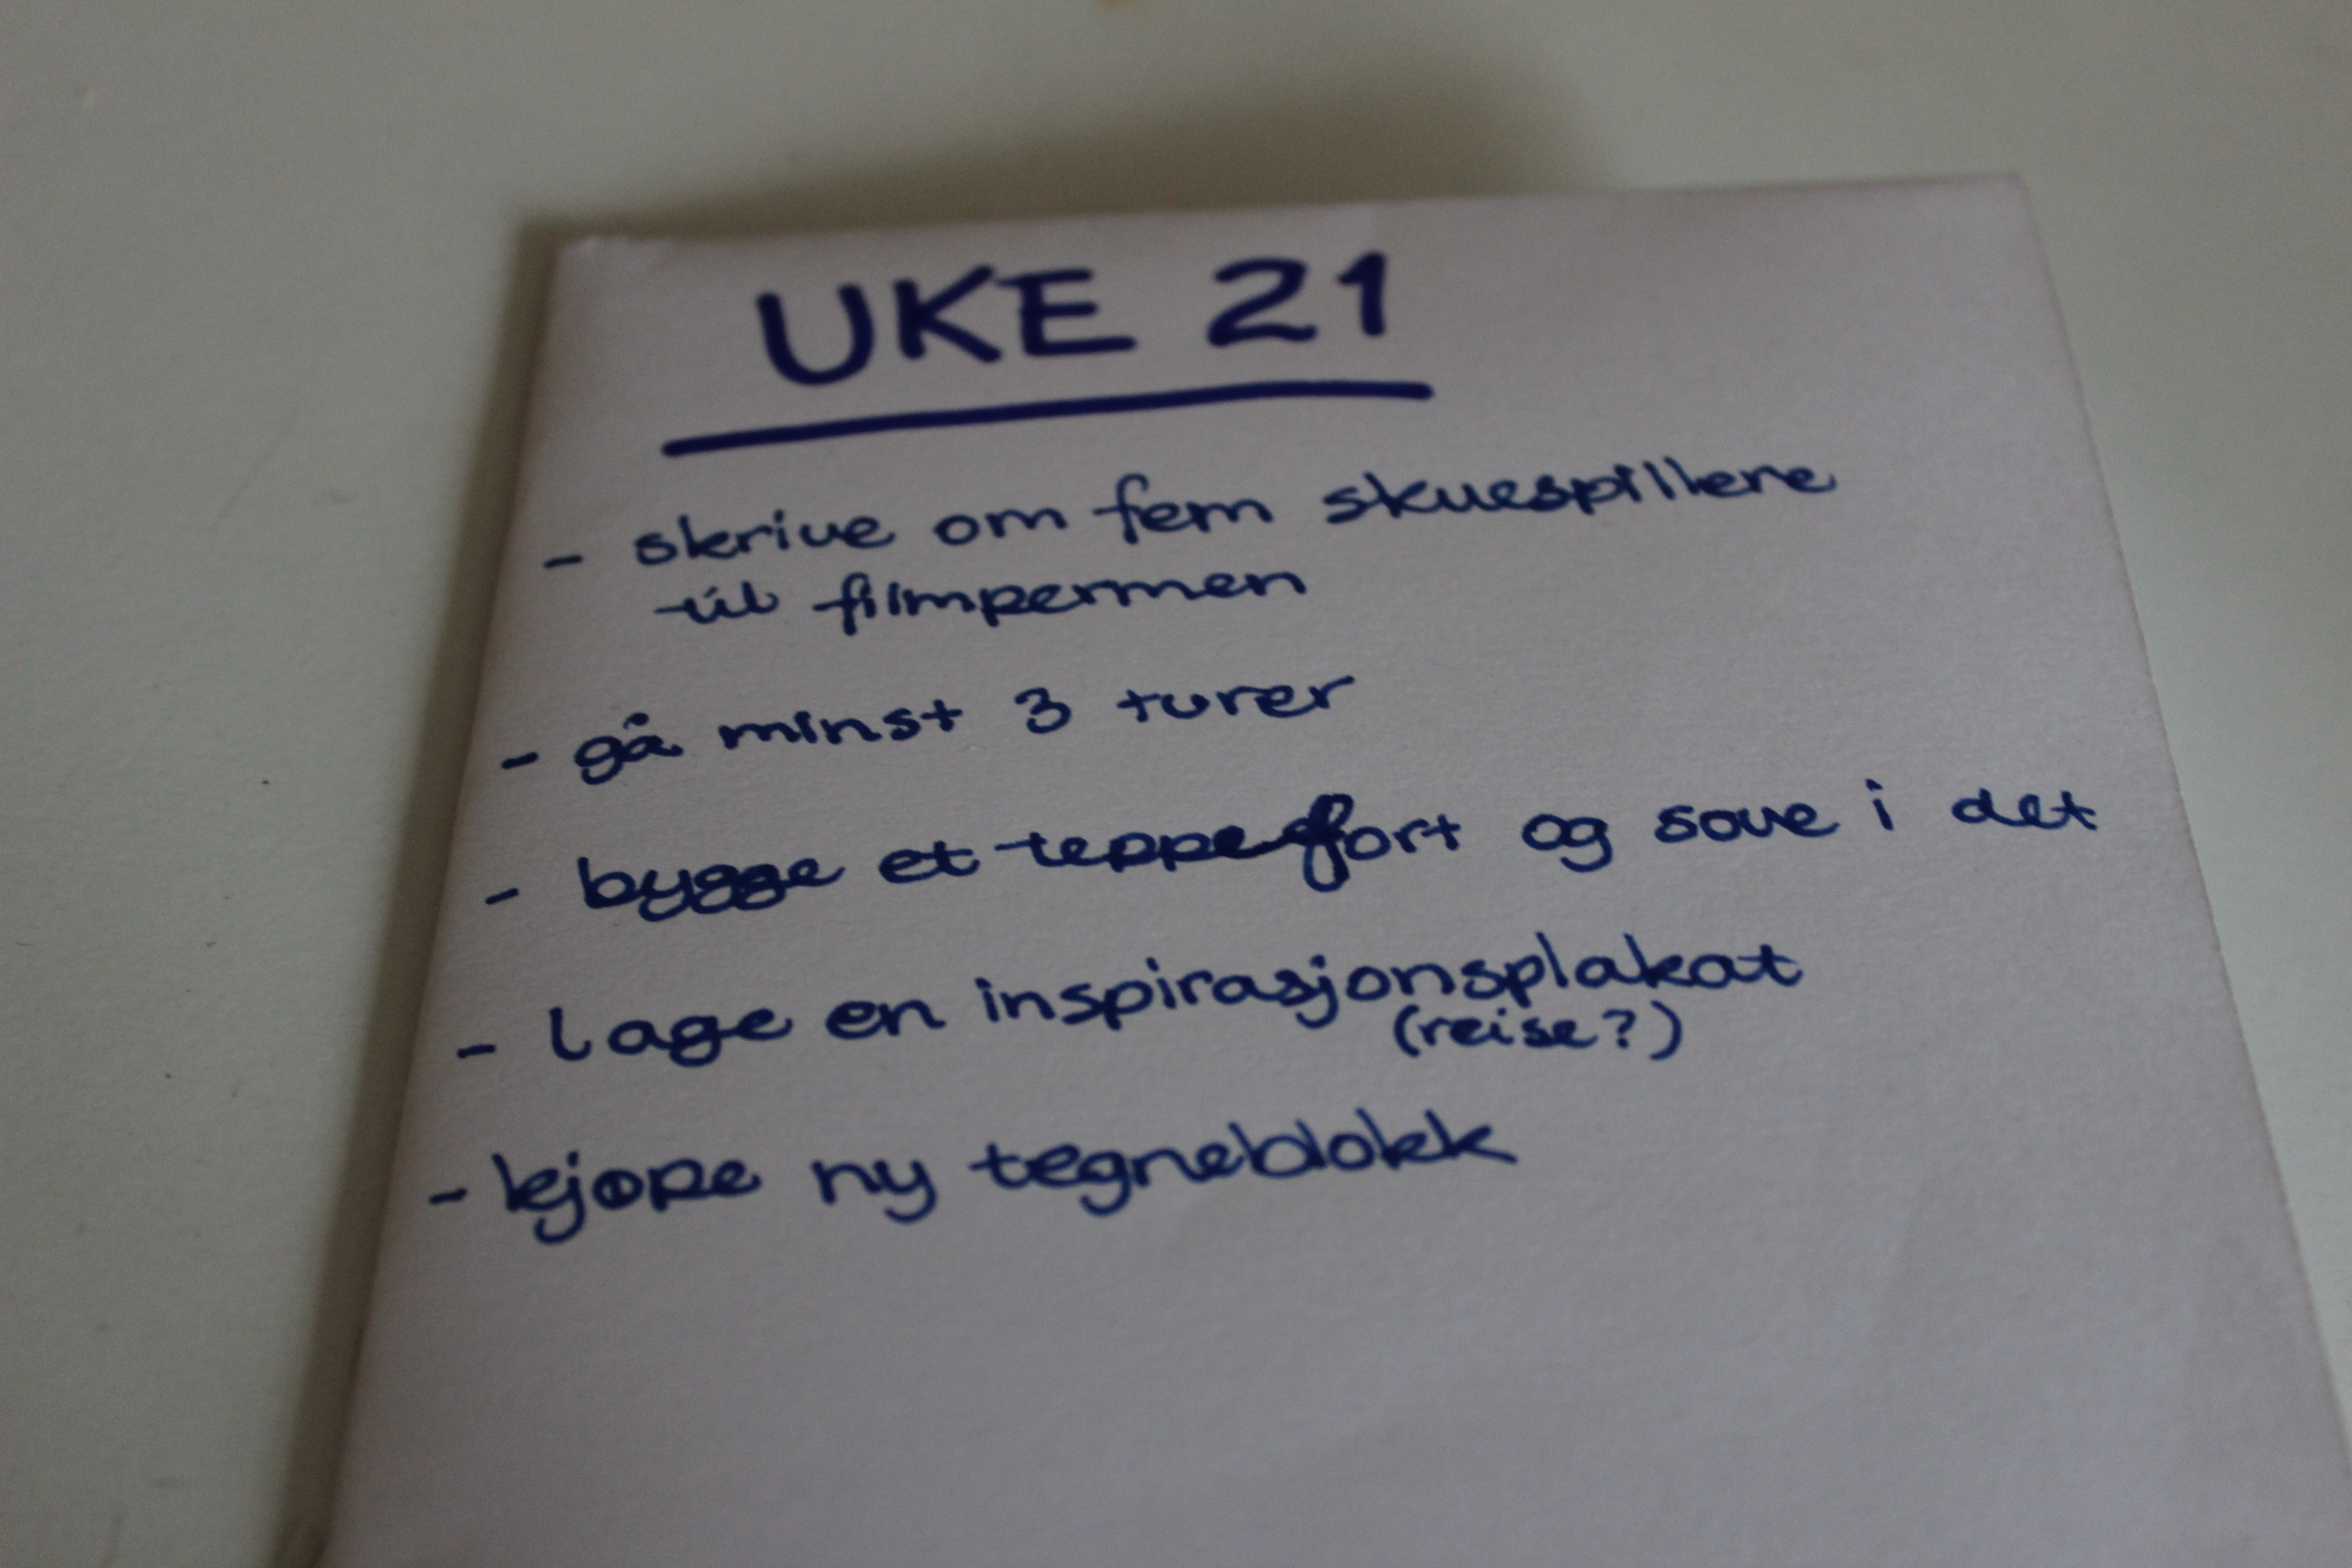 UKE 21
- skrive om fem skuespillere
til filmpermen
- gå minst 3 turer
- bygge et teppefort og sove i det
- lage en inspirasjonsplakat
(reise?)
- kjøpe ny tegneblokk